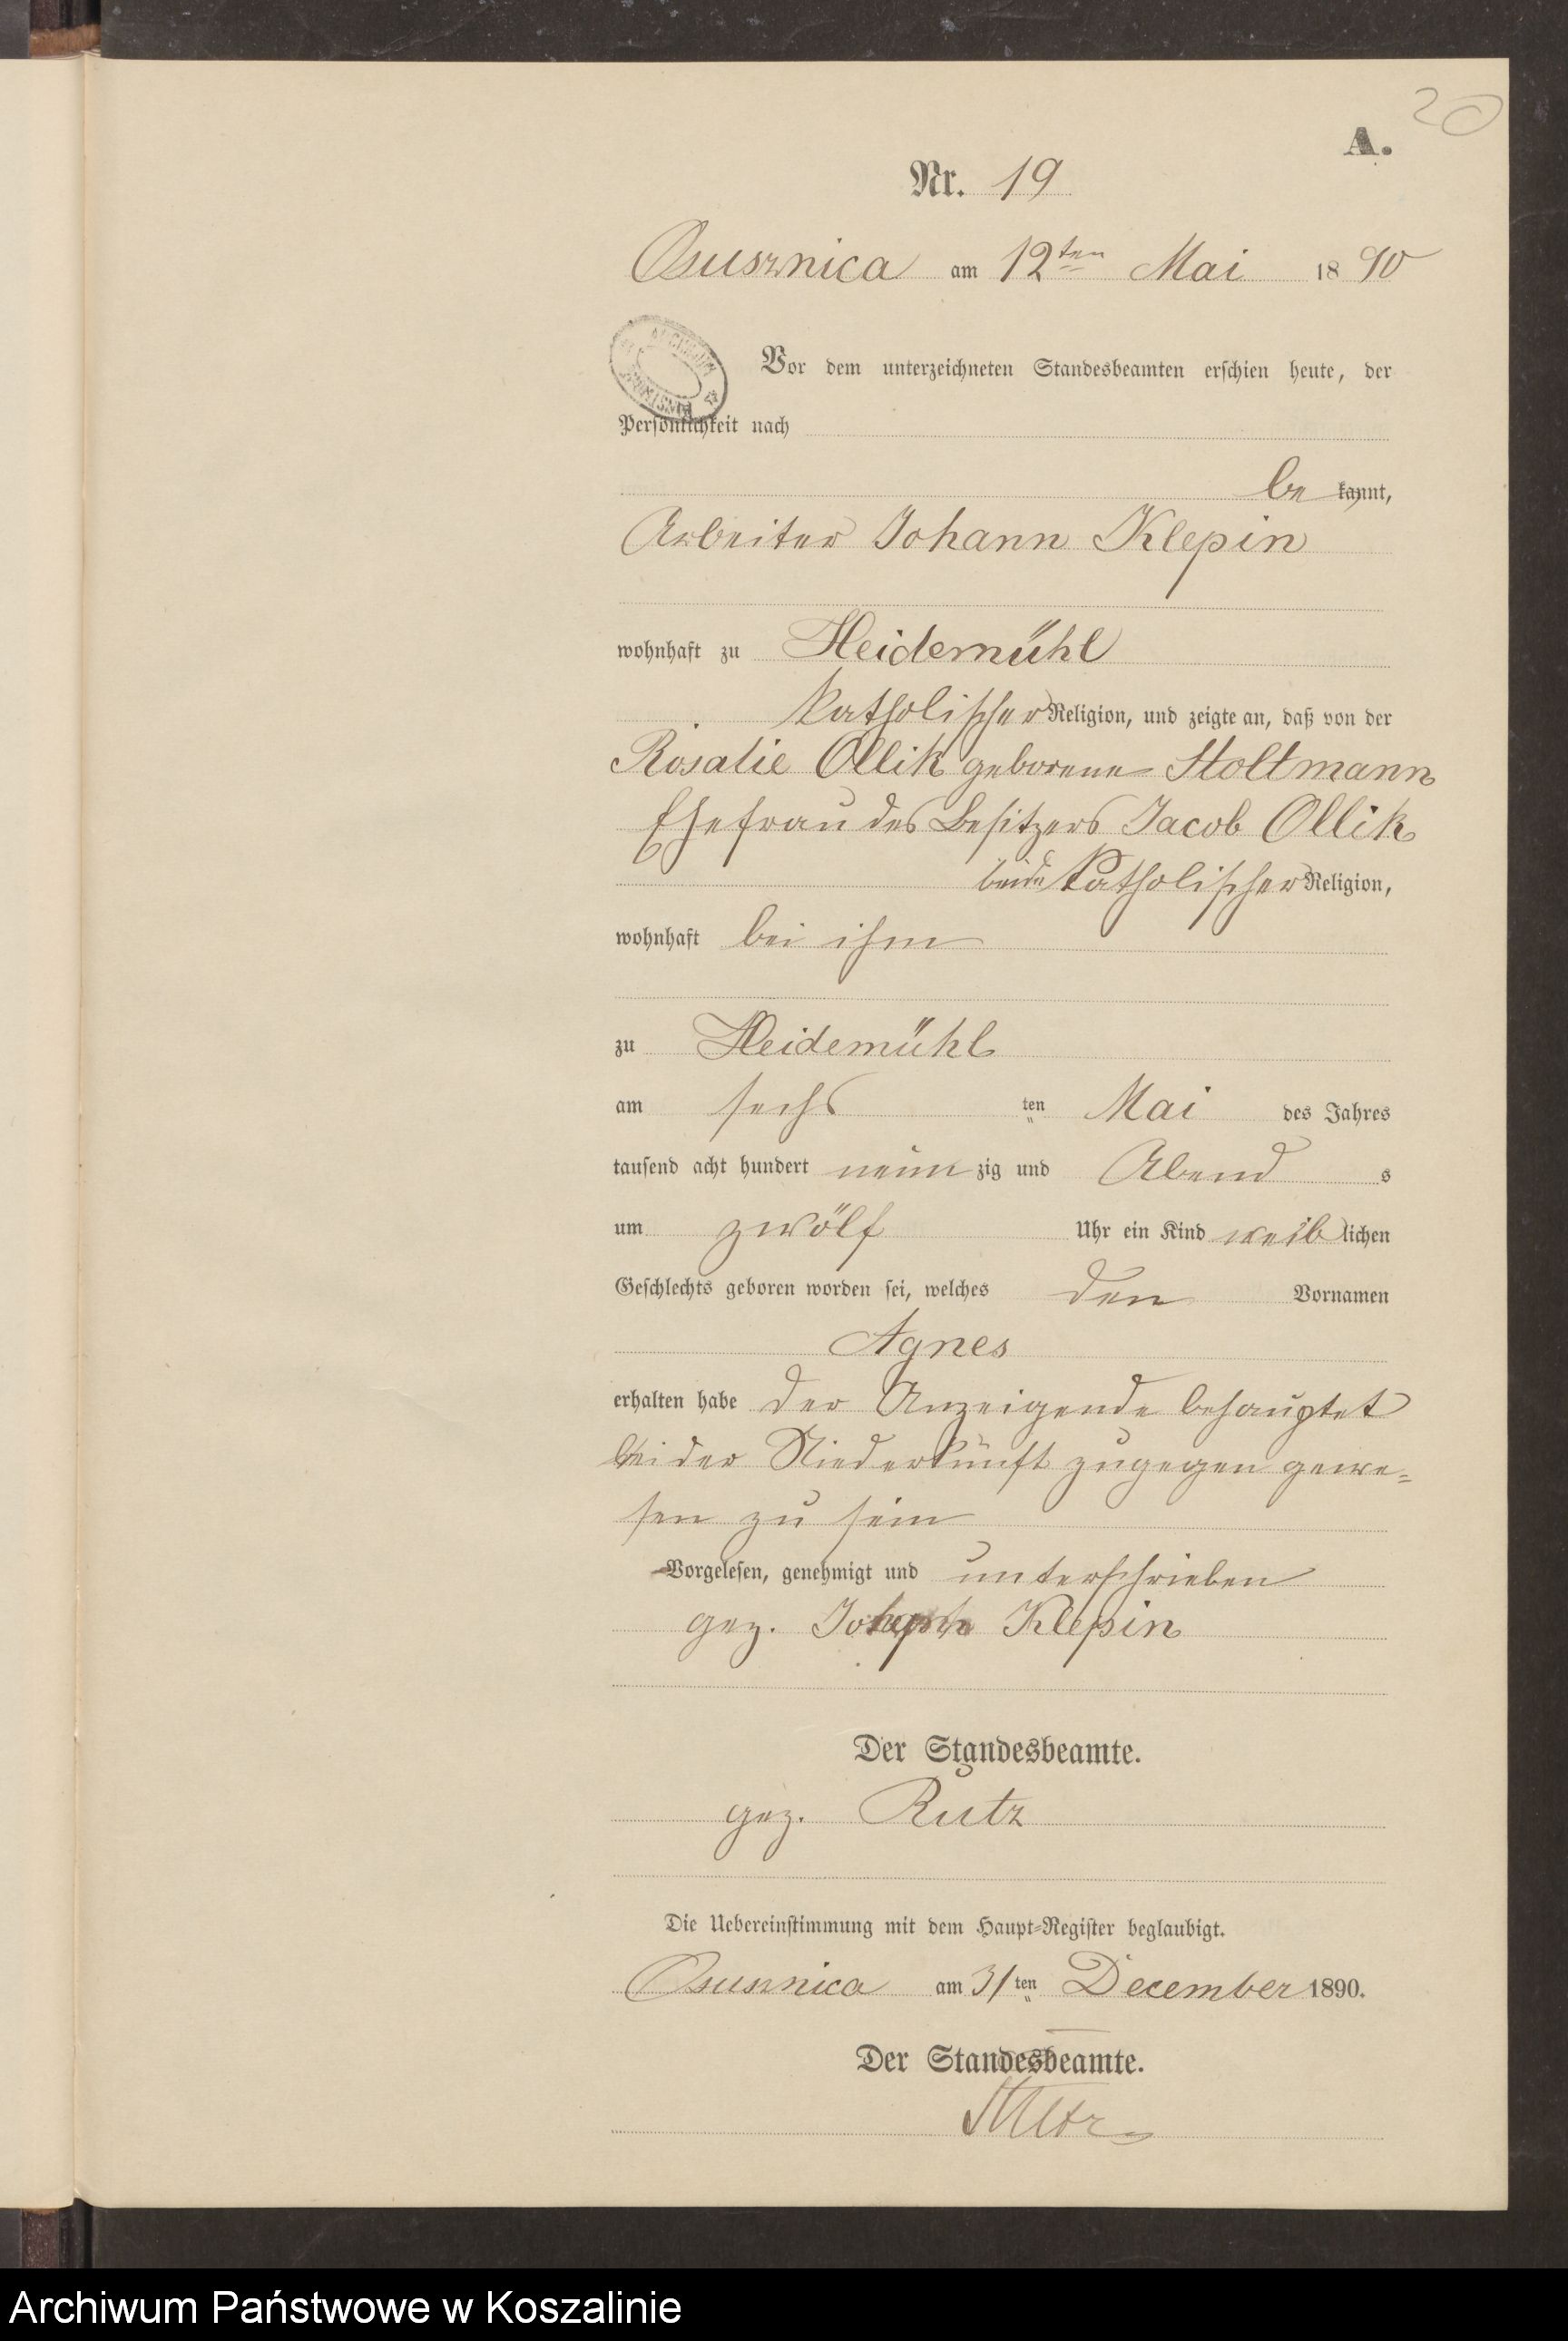 20
A.
Nr. 19
Osusznica am 12ten Mai 1890
Vor dem unterzeichneten Standesbeamten erschien heute, der
Persönlichkeit nach
be kannt,
Arbeiter Johann Klepin
wohnhaft zu Heidemühl
katholischer Religion, und zeigte an, daß von der
Rosalie Ollik geborene Stoltmann
Ehefrau des Besitzers Jacob Ollik
beide katholischer Religion,
wohnhaft bei ihm
zu Heidemühl
am sechs ten Mai des Jahres
tausend acht hundert neun zig und Abend s
um zwölf Uhr ein Kind weib lichen
Geschlechts geboren worden sei, welches den Vornamen
Agnes
erhalten habe der Anzeigende behauptet
bei der Niederkunft zugegen gewe=
sen zu sein
Vorgelesen, genehmigt und unterschrieben
gez. Johann Klepin
Der Standesbeamte.
gez. Rutz
Die Uebereinstimmung mit dem Haupt=Register beglaubigt.
Osusznica am 31ten December 1890.
Der Standesbeamte.
Archiwum Państwowe w Koszalinie